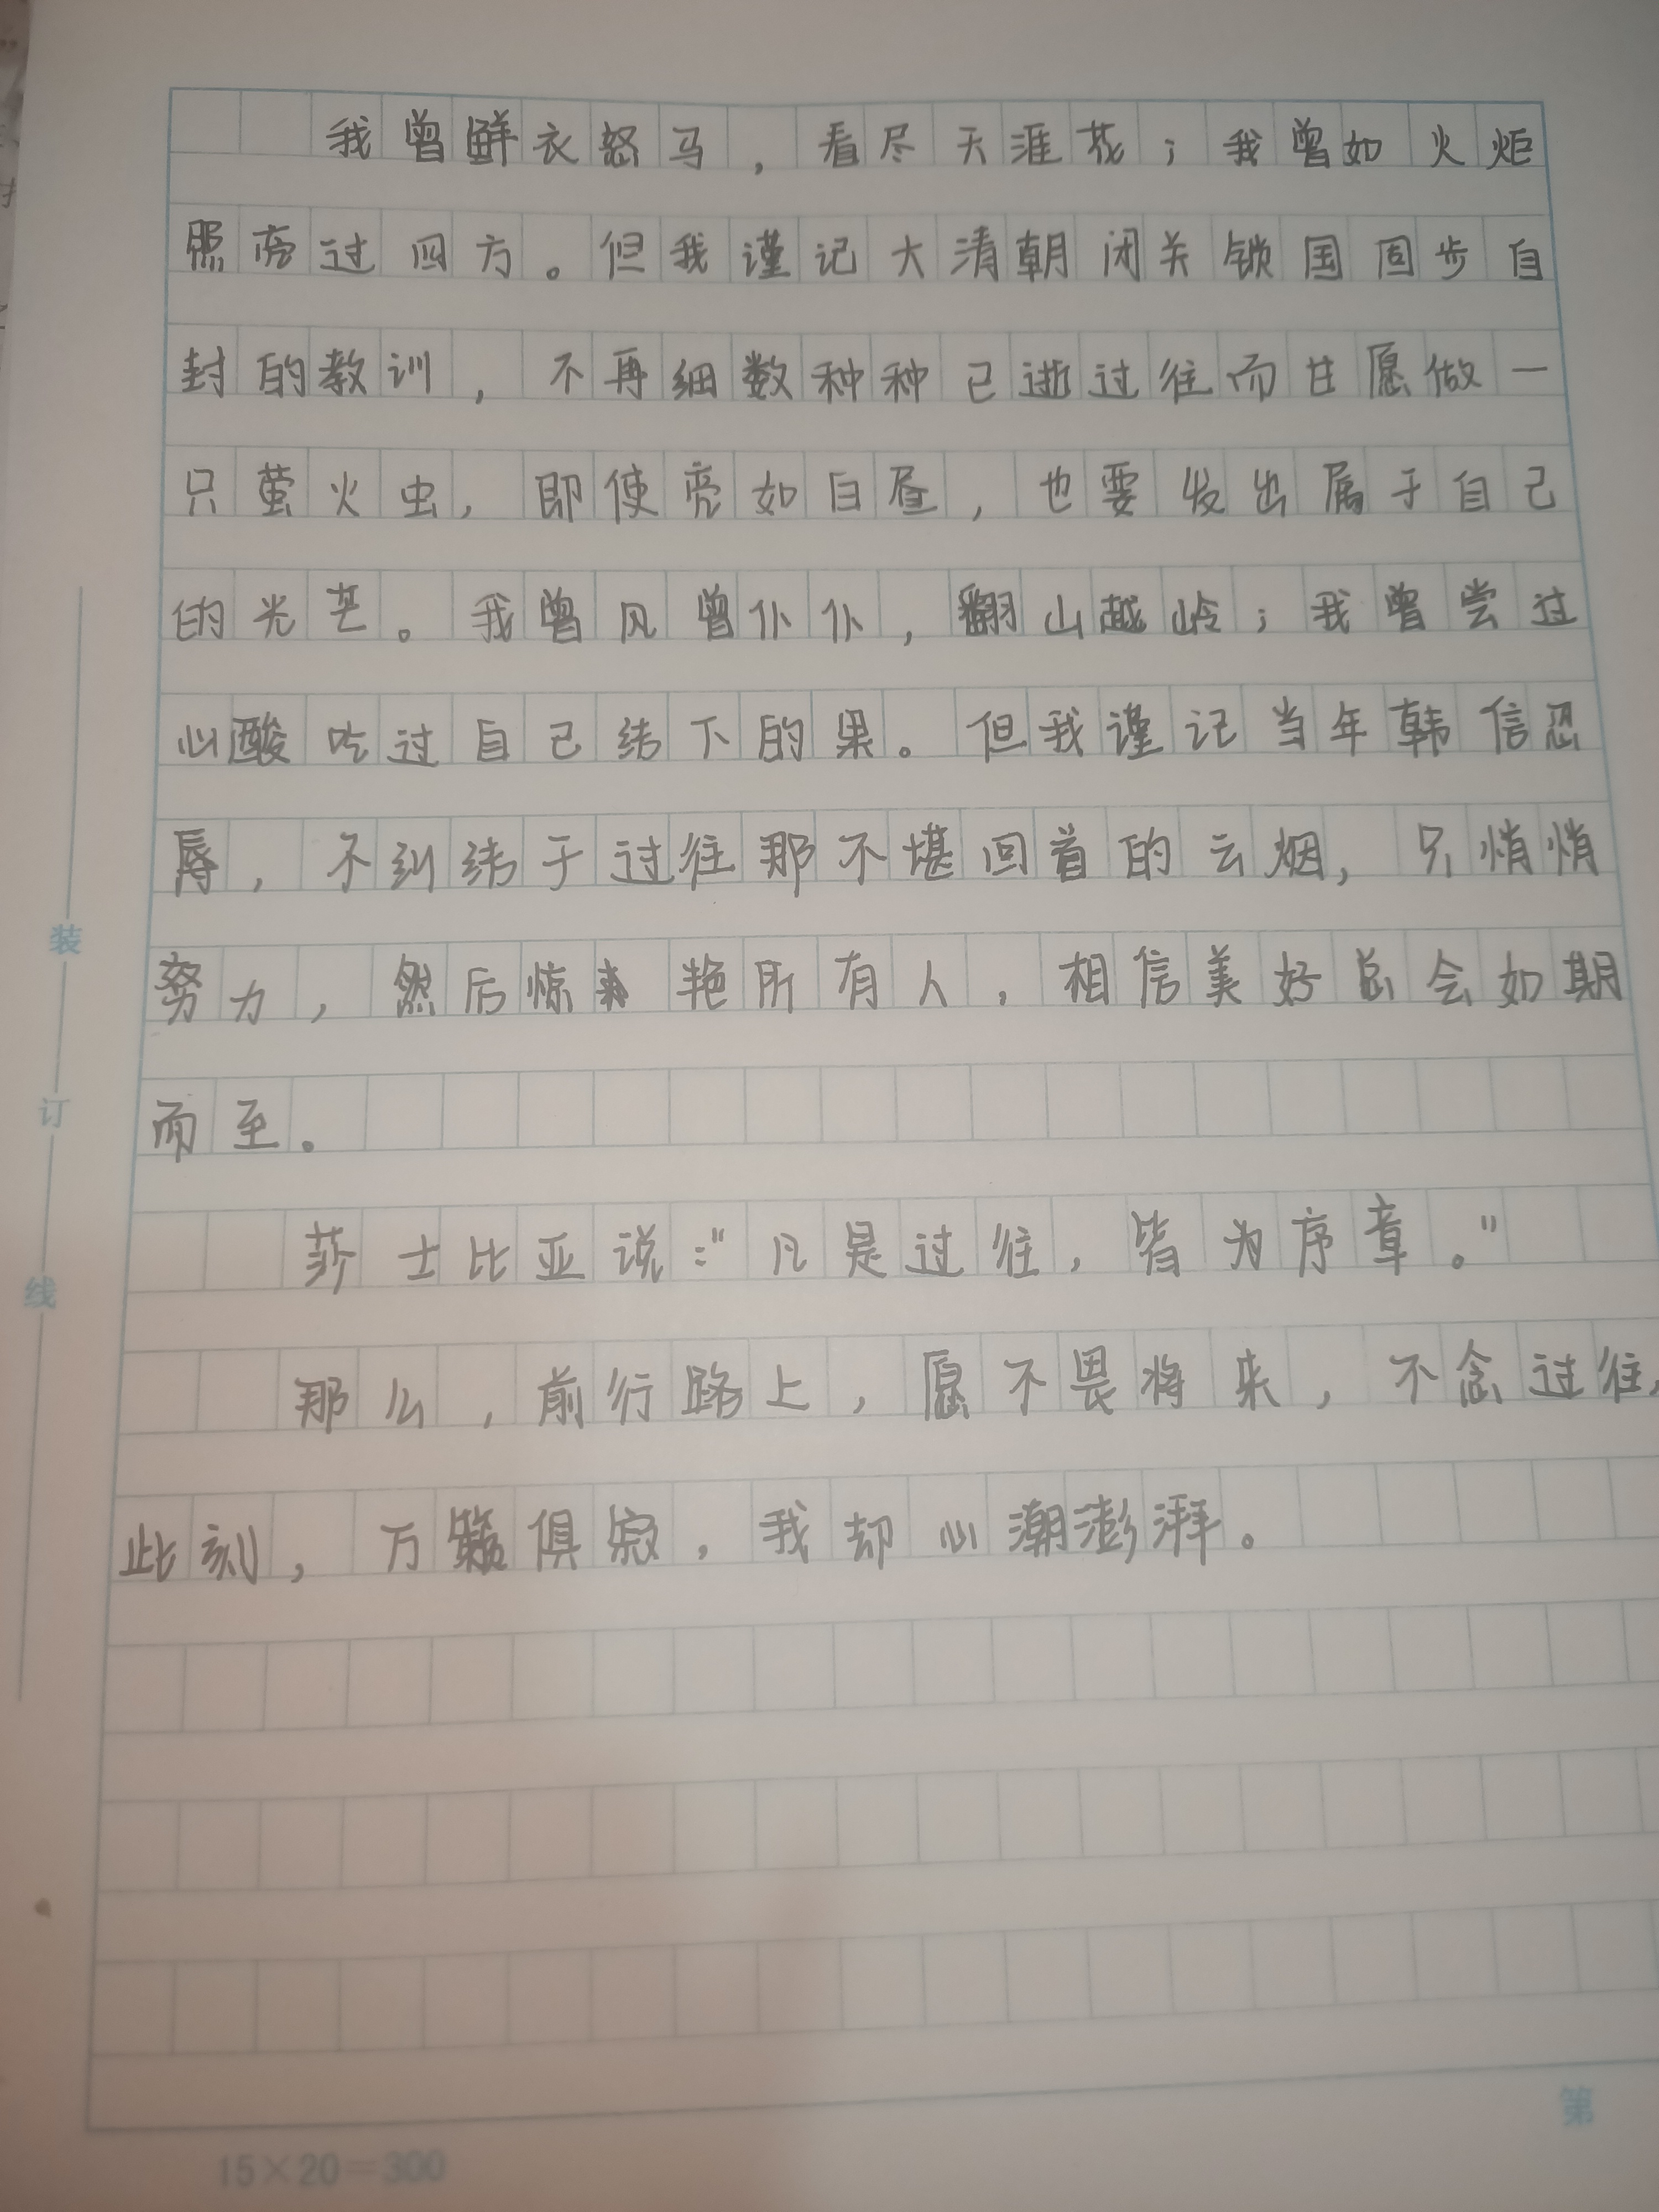 我曾鲜衣怒马，看尽天涯花；我曾如火炬
照亮过四方。但我谨记大清朝闭关锁国固步自
封的教训，不再细数种种已逝过往而甘愿做一
只萤火虫，即使亮如白昼，也要发出属于自己
的光芒。我曾风曾仆仆，翻山越岭；我曾尝过
心酸吃过自己结下的果。但我谨记当年韩信忍
辱，不纠结于过往那不堪回首的云烟，只悄悄
努力，然后惊艳所有人，相信美好总会如期
而至。
莎士比亚说：“凡是过往，皆为序章。”
那么，前行路上，愿不畏将来，不念过往，
此刻，万籁俱寂，我却心潮澎湃。
装
订
线
15×20=300
第